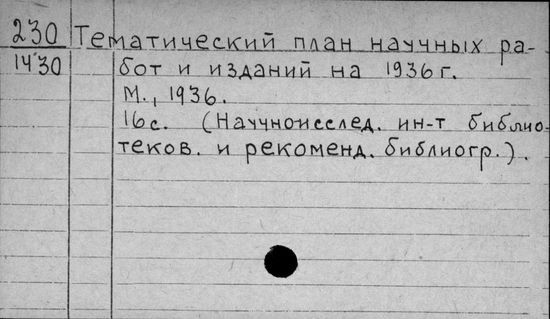 230 Тематический план научных ра-
14'30 бот и изданий на 1936 г.
М., 1936.
16 с. (Научноисслед. ин-т библио-
теков. и рекоменд. библиогр.).